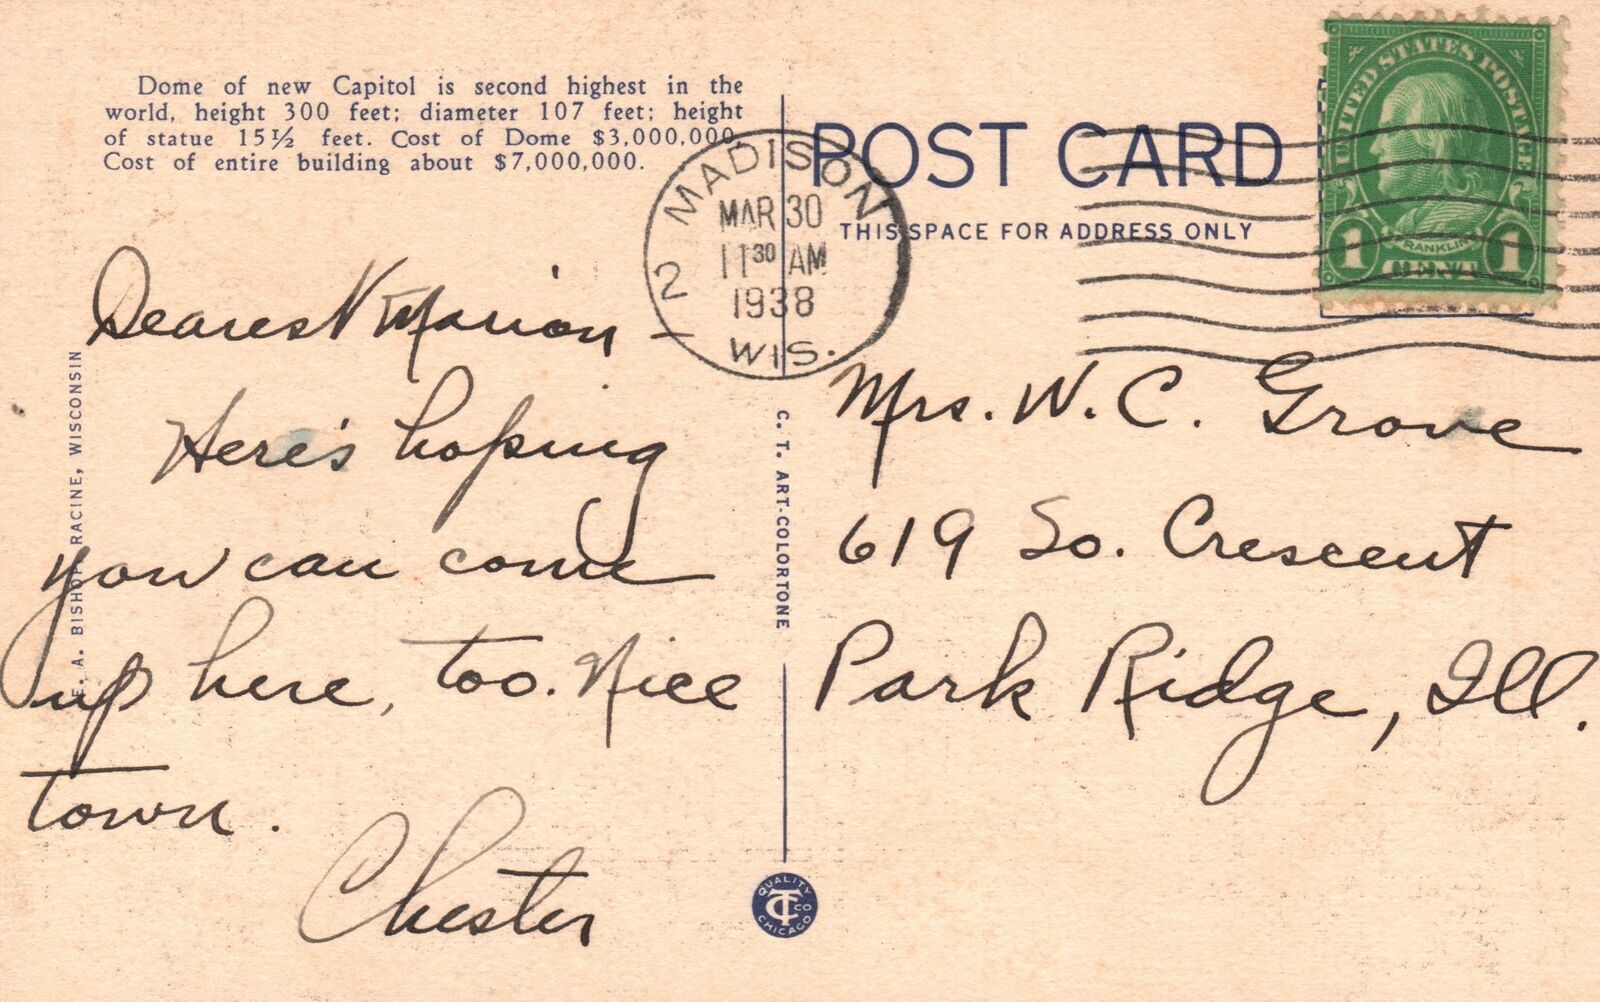 Dome of new Capitol is second highest in the
world, height 300 feet; diameter 107 feet; height
of statue 15½ feet. Cost of Dome $3,000,000.
Cost of entire building about $7,000,000.
POST CARD
THIS SPACE FOR ADDRESS ONLY
UNITED STATES POSTAGE
FRANKLIN
1 CENT 1
MADISON
MAR 30
11 30 AM
1938
2
WIS.
Dearest Marion —
Here's hoping
you can come
up here, too. Nice
town.
Chester
Mrs. W. C. Grove
619 So. Crescent
Park Ridge, Ill.
E. A. BISHOP, RACINE, WISCONSIN
C. T. ART-COLORTONE
QUALITY
CT CO
CHICAGO